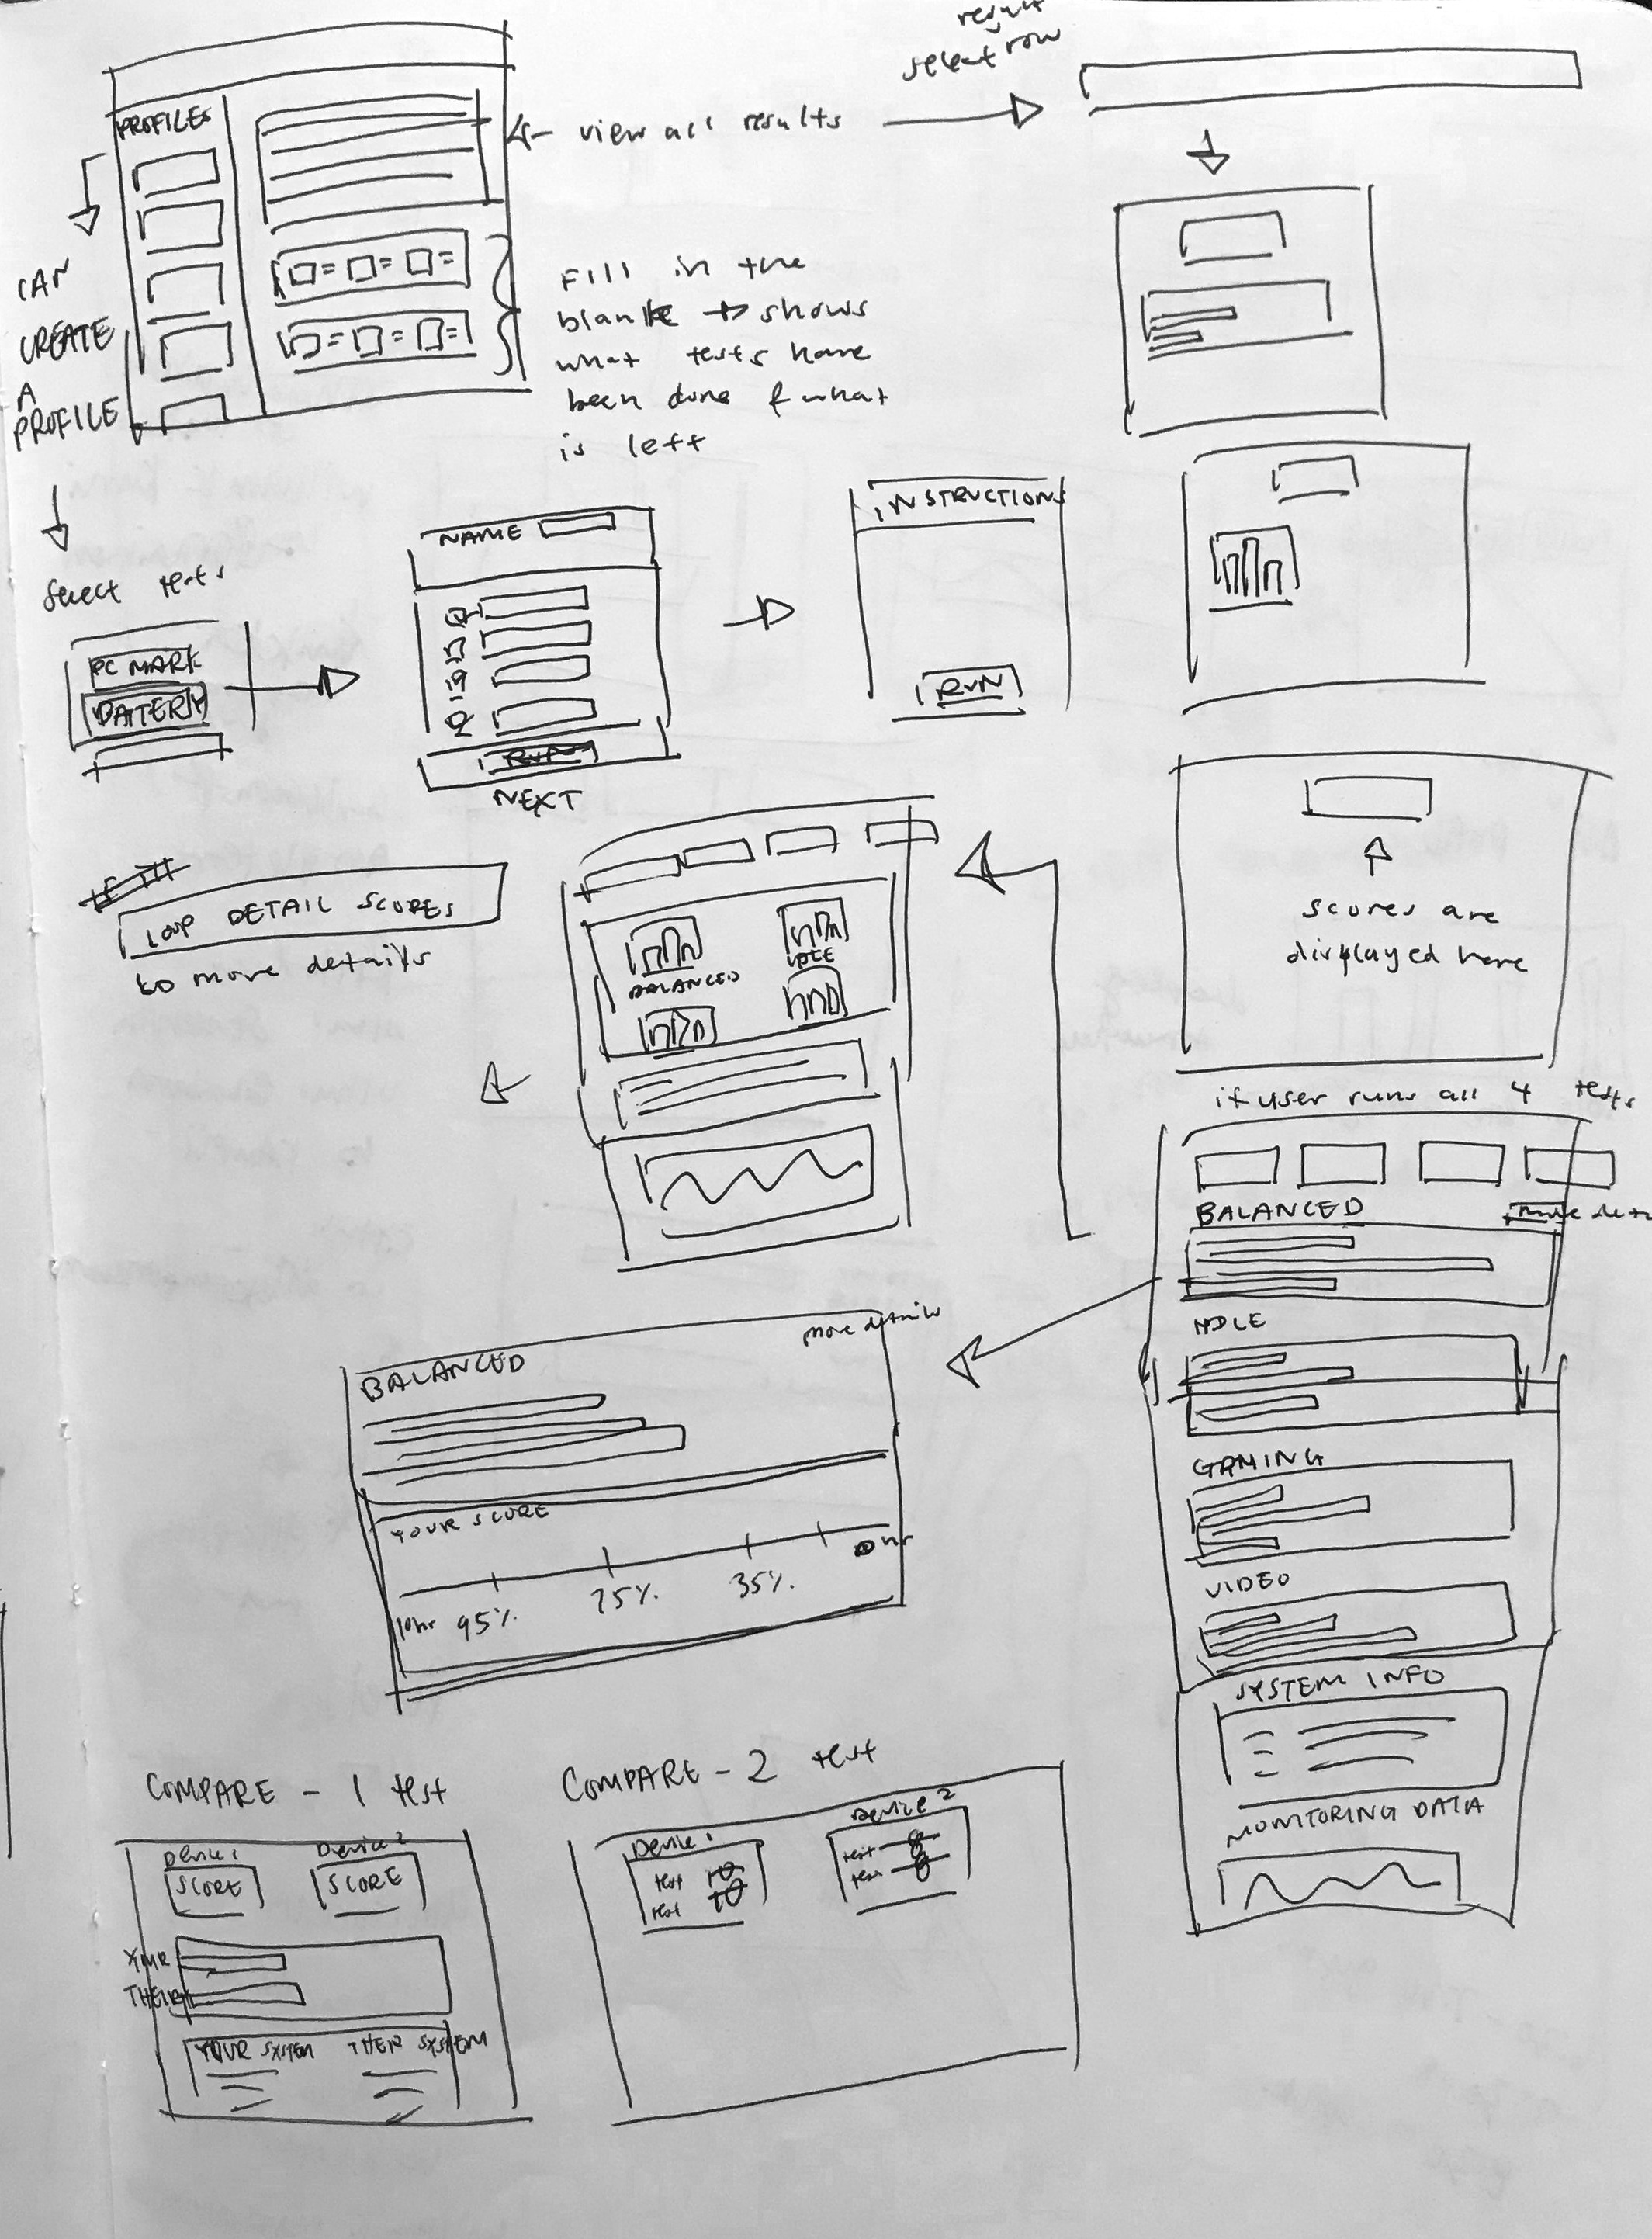 result
select row
PROFILES
view all results
CAN
CREATE
A
PROFILE
Fill in the
blank → shows
what tests have
been done & what
is left
Select tests
PC MARK
BATTERY
NAME
RUN
NEXT
INSTRUCTIONS
RUN
scores are
displayed here
LOOP DETAIL SCORES
to more details
BALANCED
IDLE
if user runs all 4 tests
BALANCED
more
IDLE
GAMING
VIDEO
SYSTEM INFO
MONITORING DATA
more details
BALANCED
YOUR SCORE
10hr 95% 75% 35%
COMPARE - 1 test
Device 1 Device 2
SCORE SCORE
YOUR
THEIR
YOUR SYSTEM THEIR SYSTEM
COMPARE - 2 test
Device 1 Device 2
test
test
test
test